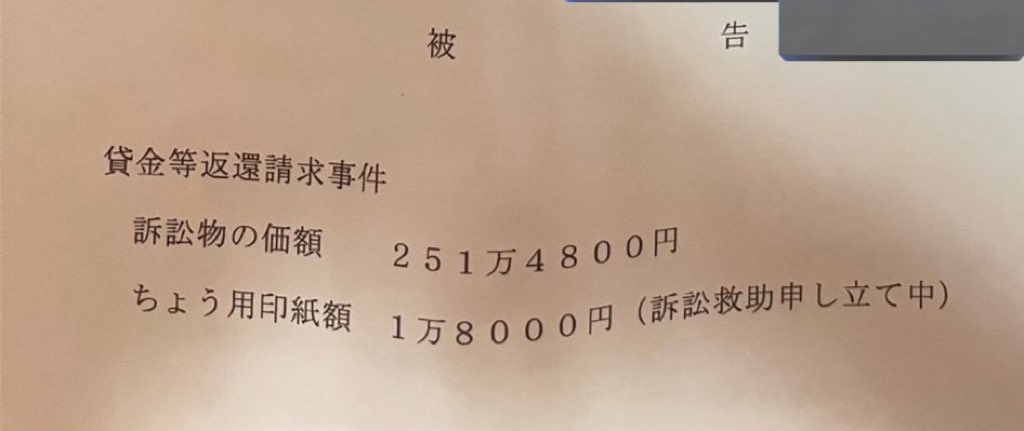 被告
貸金等返還請求事件
訴訟物の価額 251万4800円
ちょう用印紙額 1万8000円(訴訟救助申し立て中)